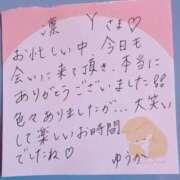 凛 Yさま♡
お忙しい中、今日も
会いに来て頂き、本当に
ありがとうございました!!
色々ありましたが…大笑い
して楽しいお時間
でしたね♡
ゆうか